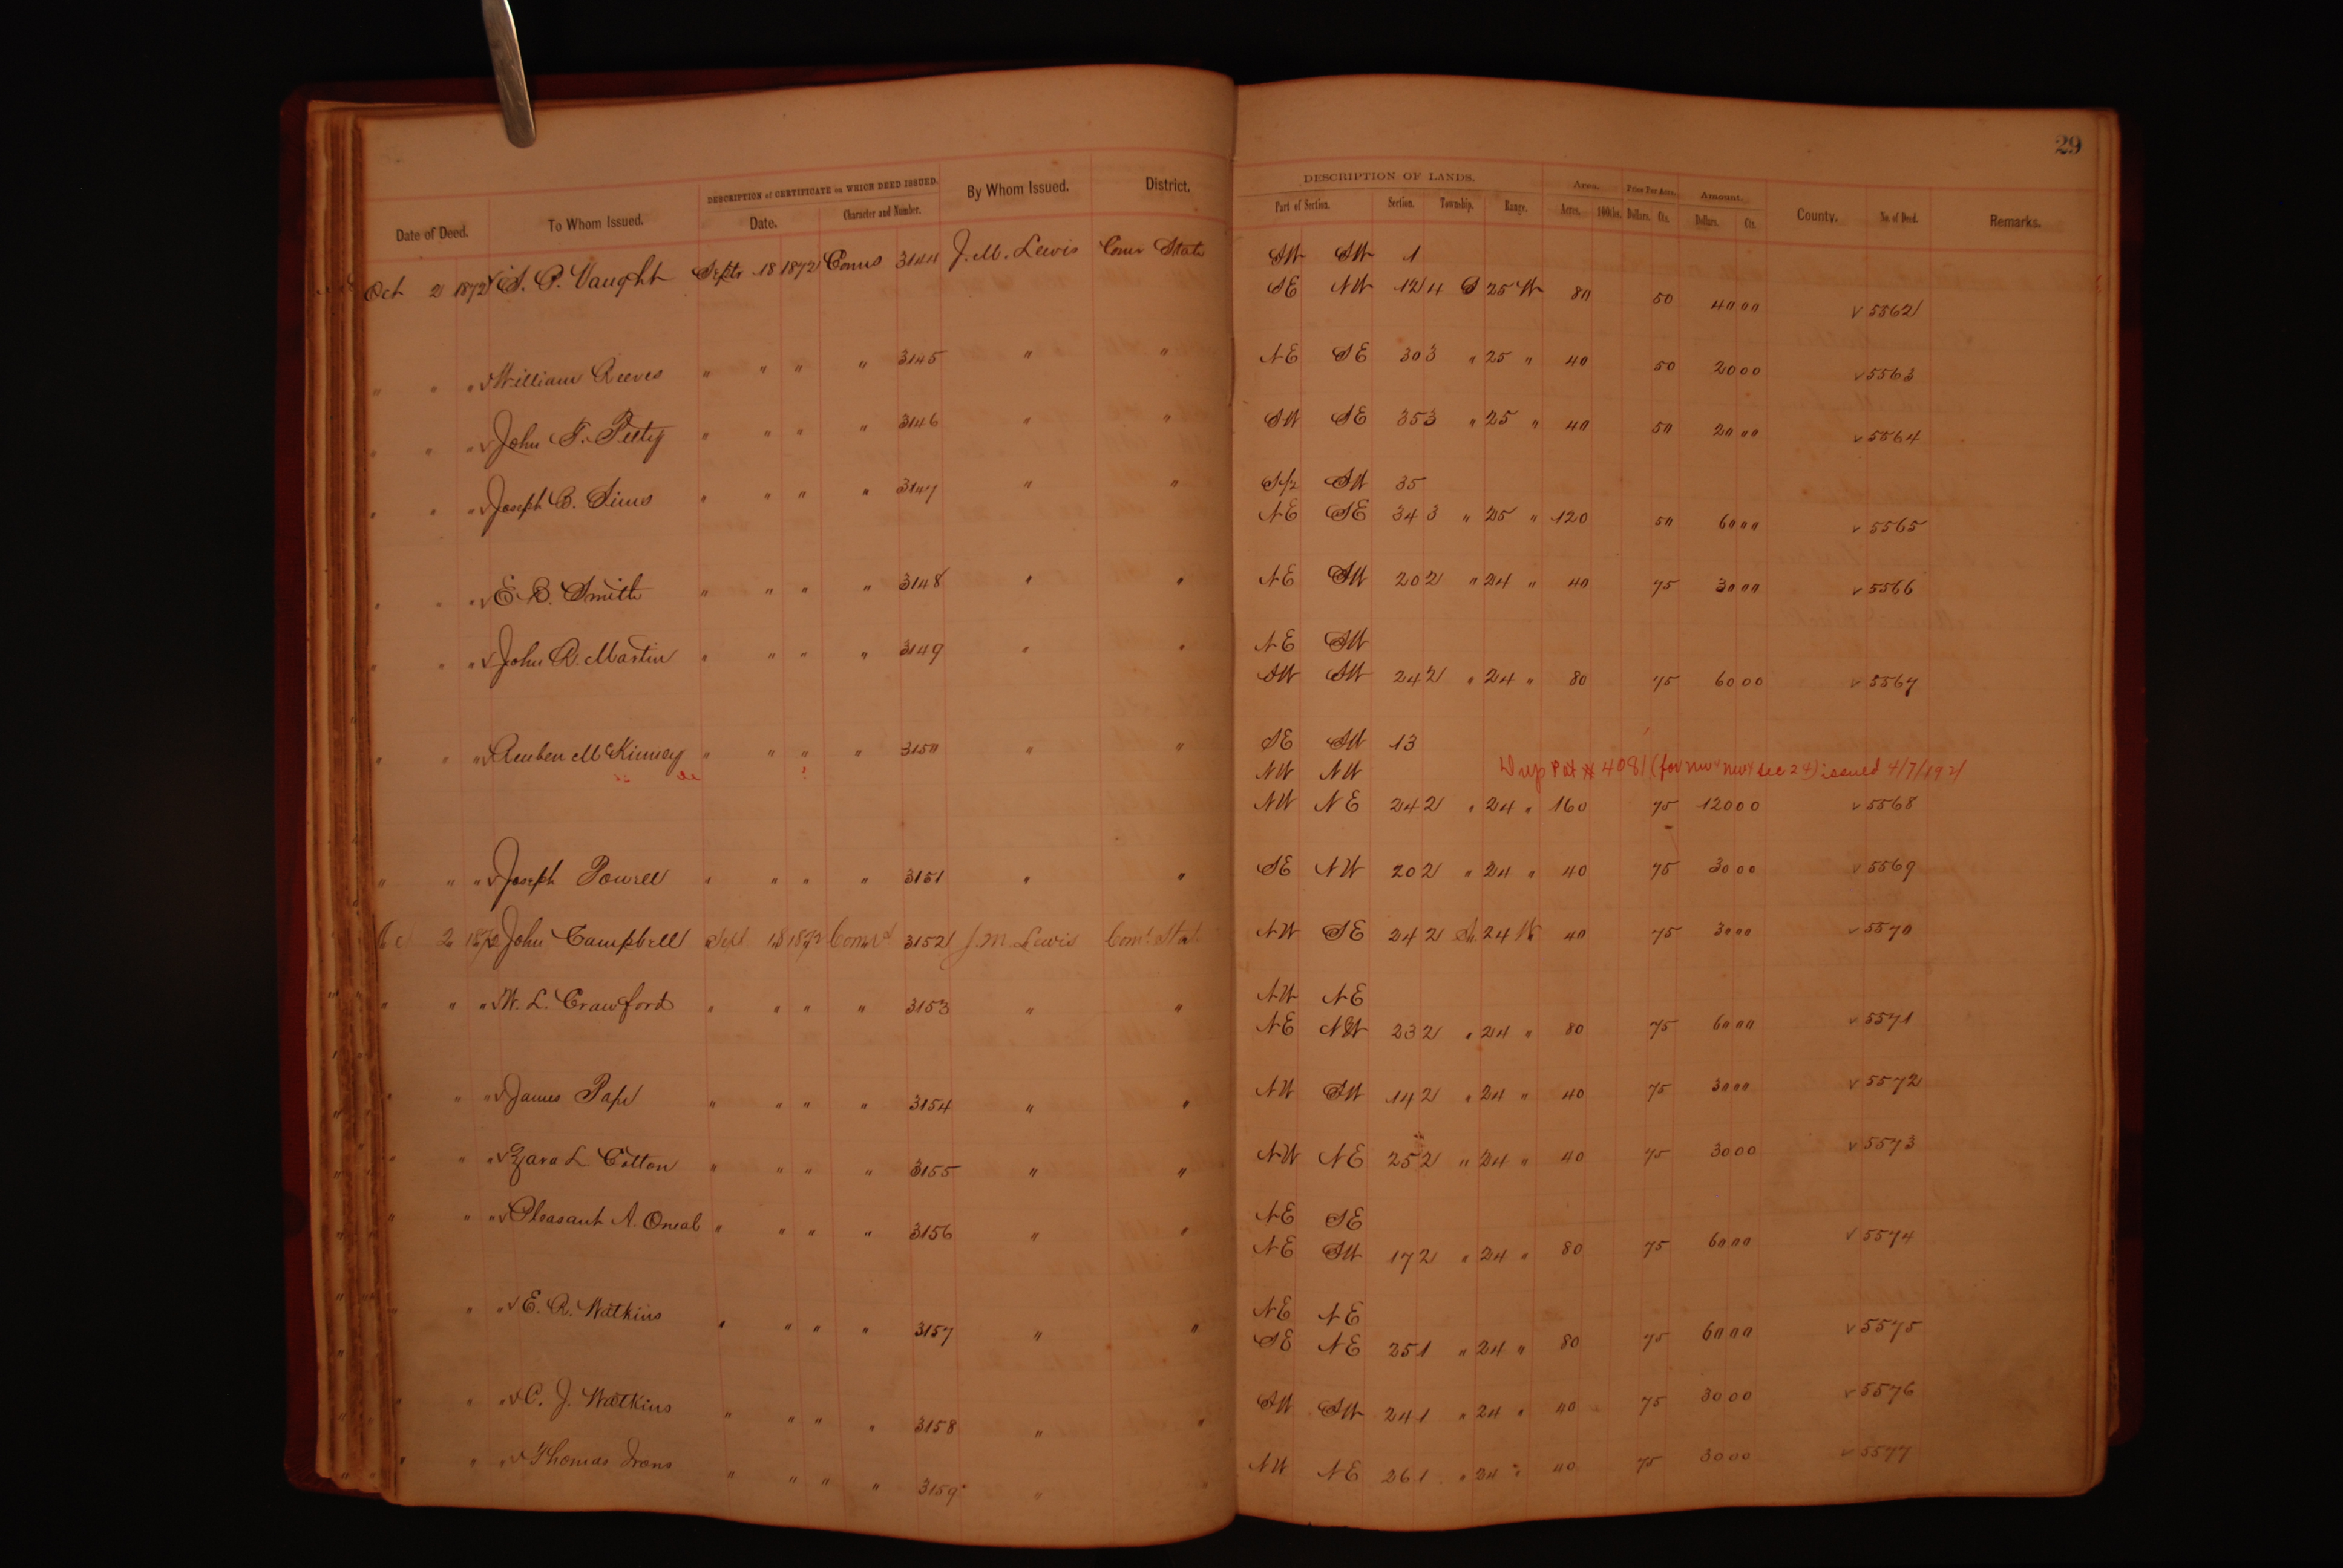 29
DESCRIPTION of CERTIFICATE on WHICH DEED ISSUED. By Whom Issued. District. DESCRIPTION OF LANDS. Area. Price Per Acre. Amount.
Date of Deed. To Whom Issued. Date. Character and Number. Part of Section. Section. Township. Range. Acres. 100ths. Dollars. Cts. Dollars. Cts. County. No. of Deed. Remarks.
Oct 2 1872 S. P. Vaught Septr 18 1872 Comrs 3144 J. M. Lewis Comr State SW SW 1
SE NW 12 4 S 25 W 80 50 40 00 v 5562
" " " v William Reeves " " " " 3145 " " NE SE 30 3 " 25 " 40 50 20 00 v 5563
" " " v John T. Petty " " " " 3146 " " SW SE 35 3 " 25 " 40 50 20 00 v 5564
" " " v Joseph B. Sims " " " " 3147 " " S/2 SW 35
NE SE 34 3 " 25 " 120 50 60 00 v 5565
" " " v E. B. Smith " " " " 3148 " " NE SW 20 2 " 24 " 40 75 30 00 v 5566
" " " v John R. Martin " " " " 3149 " " NE SW
SW SW 24 2 " 24 " 80 75 60 00 v 5567
" " " v Reuben McKinney " " " " 3150 " " SE SW 13
NW NW Dup Pat # 4081 (for nw nw sec 24) issued 4/7/1921
NW NE 24 2 " 24 " 160 75 120 00 v 5568
" " " v Joseph Powell " " " " 3151 " " SE NW 20 2 " 24 " 40 75 30 00 v 5569
Oct 2 1872 John Campbell Sept 18 1872 Comrs 3152 J. M. Lewis Comr State NW SE 24 2 S. 24 W 40 75 30 00 v 5570
" " " v W. L. Crawford " " " " 3153 " " NW NE
NE NW 23 2 " 24 " 80 75 60 00 v 5571
" " " v James Pape " " " " 3154 " " NW SW 14 2 " 24 " 40 75 30 00 v 5572
" " " v Zara L. Cotton " " " " 3155 " " NW NE 25 2 " 24 " 40 75 30 00 v 5573
" " " v Pleasant A. Oneal " " " " 3156 " " NE SE
NE SW 17 2 " 24 " 80 75 60 00 v 5574
" " " v E. R. Watkins " " " " 3157 " " NE NE
SE NE 25 1 " 24 " 80 75 60 00 v 5575
" " " v C. J. Watkins " " " " 3158 " " SW SW 24 1 " 24 " 40 75 30 00 v 5576
" " " v Thomas Irons " " " " 3159 " " NW NE 26 1 " 24 " 40 75 30 00 v 5577